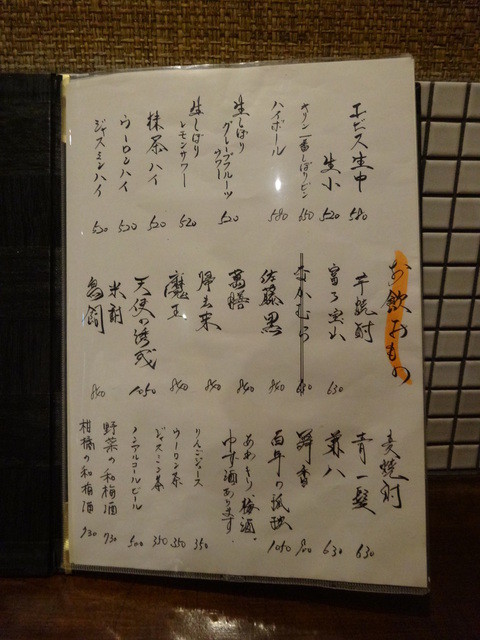 お飲みもの
エビス生中 580
生小 520
キリン一番しぼりビン 650
ハイボール 580
生しぼり
グレープフルーツ
サワー 520
生しぼり
レモンサワー 520
抹茶ハイ 520
ウーロンハイ 520
ジャスミンハイ 520
芋焼酎
富乃宝山 630
なかむら 630
佐藤黒 840
萬膳 840
帰去来 840
魔王 840
天使の誘惑 1050
米酎
鳥飼 840
麦焼酎
青一髪 630
兼八 630
舞香 800
百年の孤独 1050
あわもり、梅酒、
ゆず酒あります。
りんごジュース 350
ウーロン茶 350
ジャスミン茶 350
ノンアルコールビール 500
野菜の和梅酒 730
柑橘の和梅酒 730